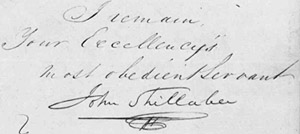 I remain,
Your Excellency's
most obedient Servant
John Shillaber